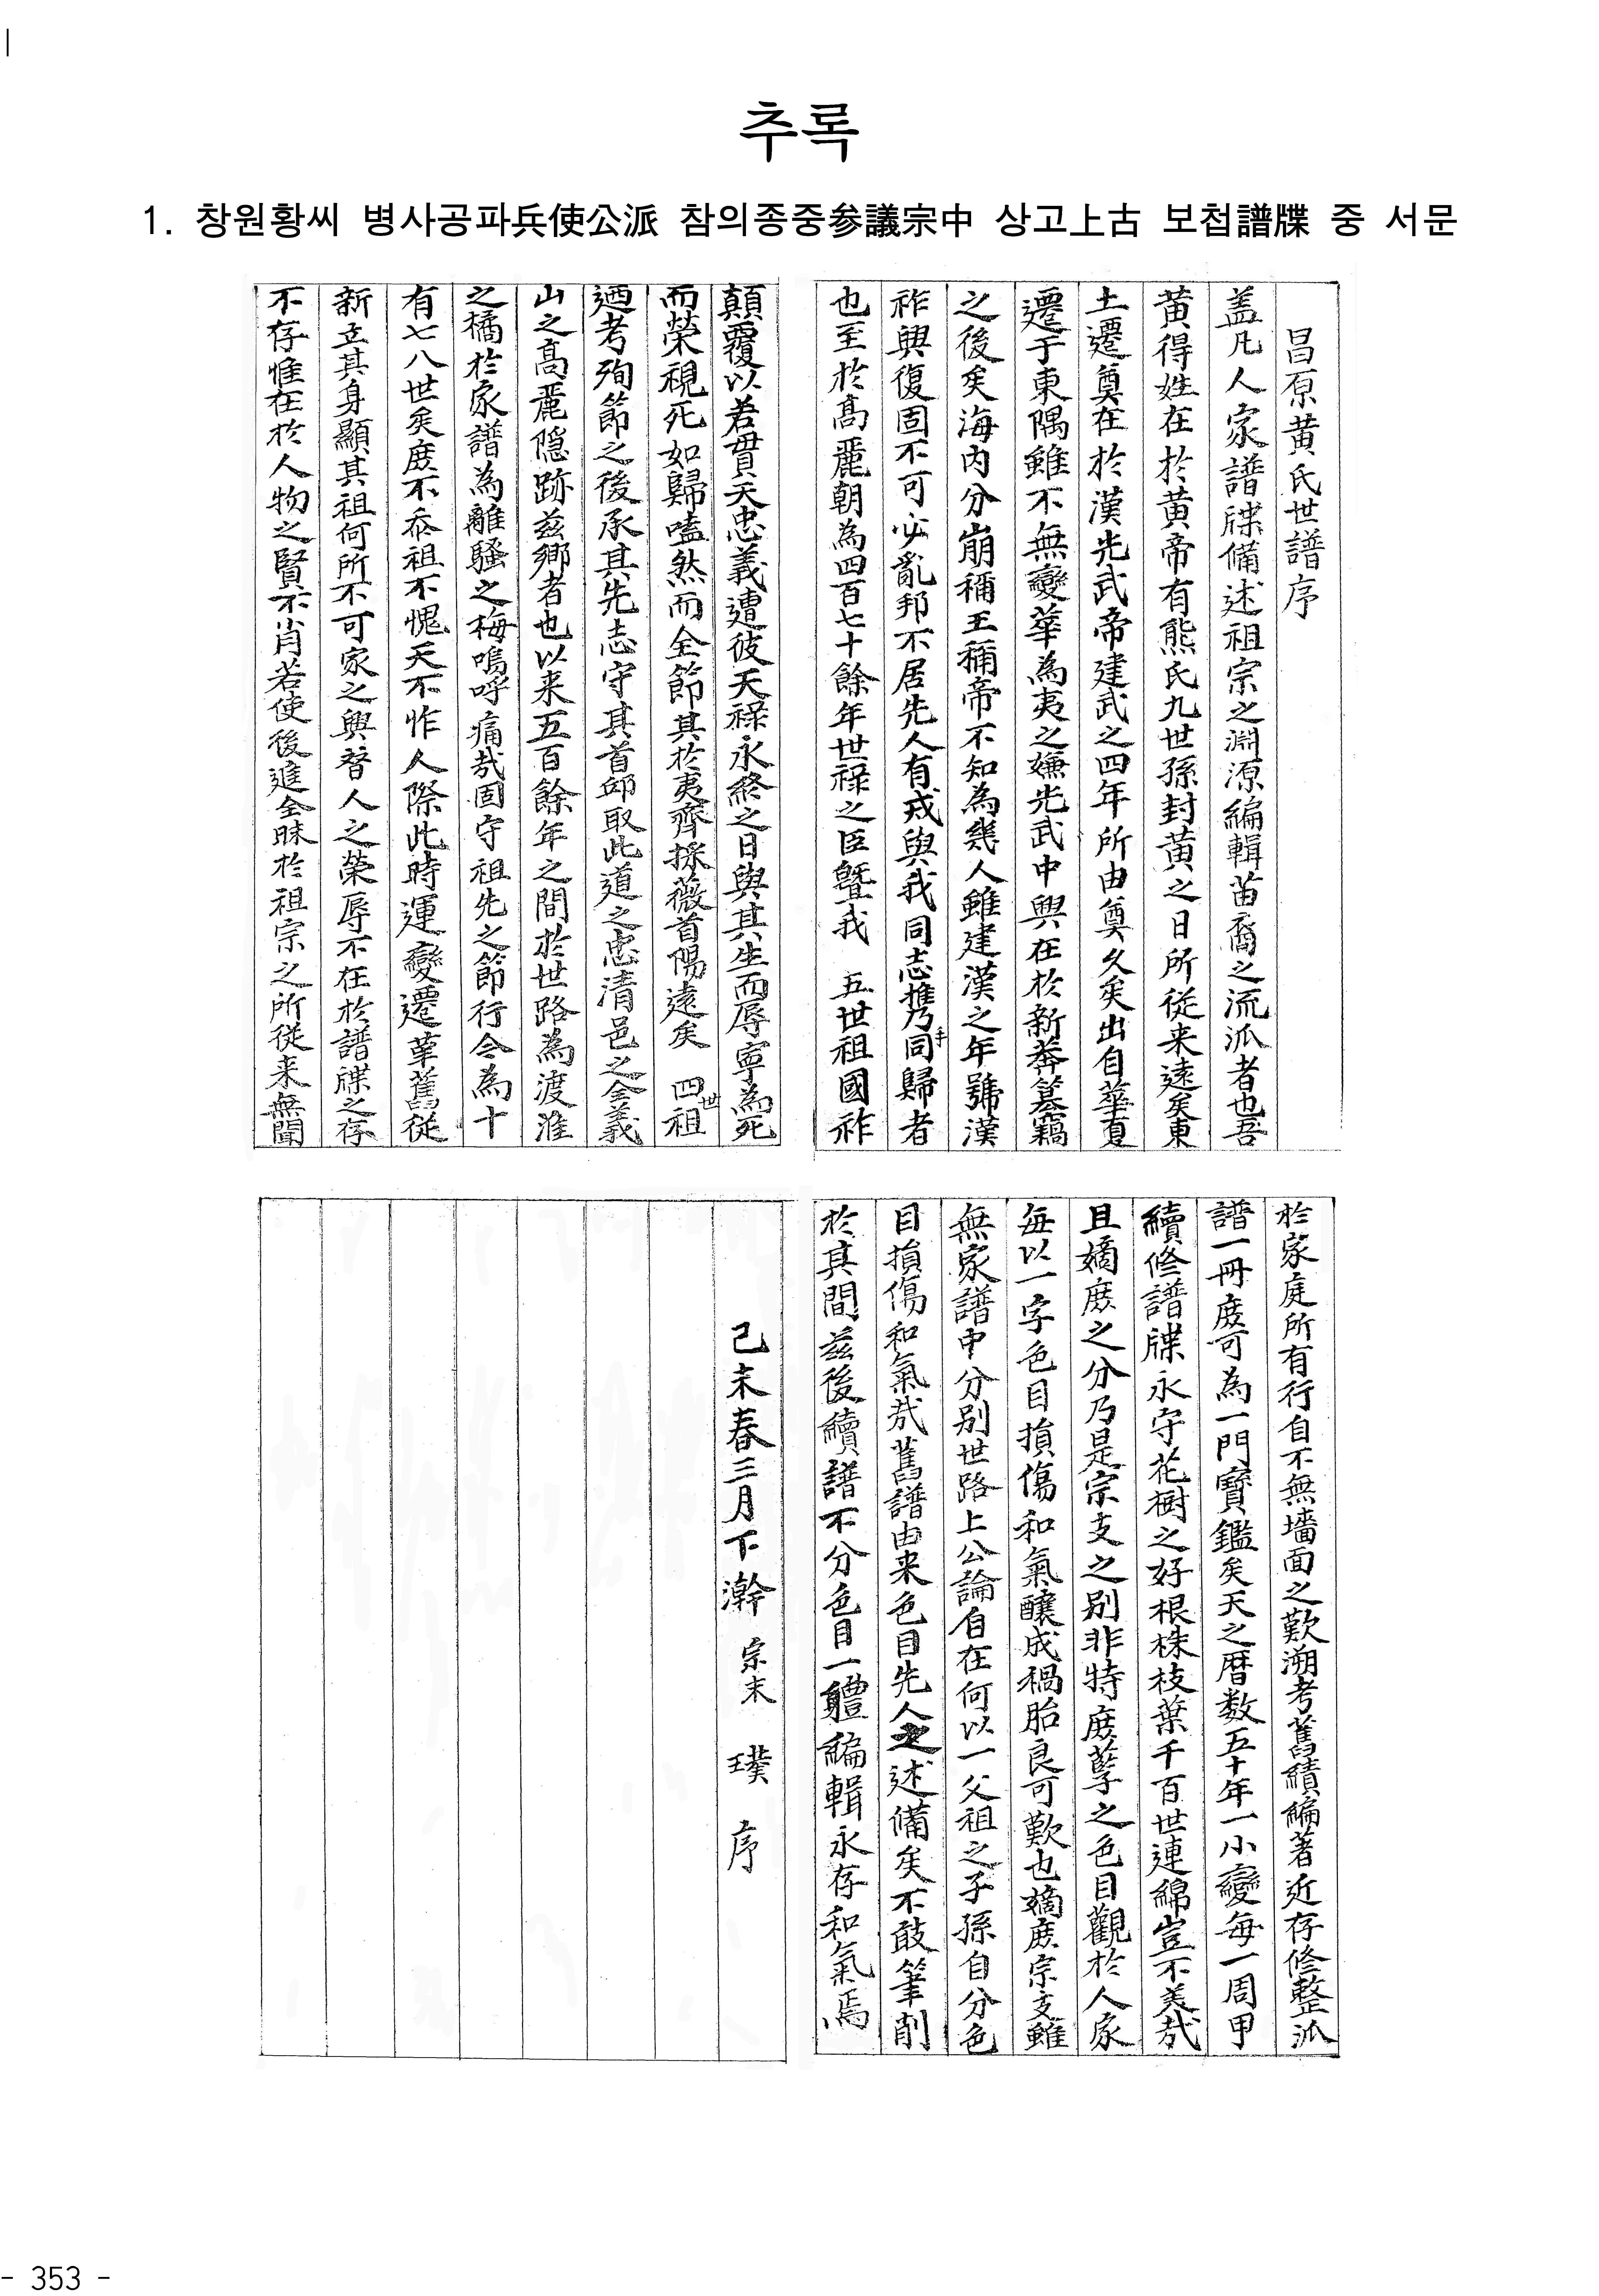 추록
1. 창원황씨 병사공파兵使公派 참의종중参議宗中 상고上古 보첩譜牒 중 서문
昌原黃氏世譜序
盖凡人家譜牒備述祖宗之淵源編輯苗裔之流派者也吾
黃得姓在於黃帝有熊氏九世孫封黃之日所從来遠矣東
土遷奠在於漢光武帝建武之四年所由奠久矣出自華夏
遷于東隅雖不無變華為夷之嫌光武中興在於新莽簒竊
之後矣海內分崩稱王稱帝不知為幾人雖建漢之年號漢
祚興復固不可必亂邦不居先人有戎與我同志携手乃同歸者
也至於高麗朝為四百七十餘年世祿之臣曁我 五世祖國祚
顛覆以若貫天忠義遭彼天祿永終之日與其生而辱寧為死
而榮視死如歸嗑然而全節其於夷齊採薇首陽遠矣 四世祖
迺考殉節之後承其先志守其首邱取此道之忠清邑之全義
山之高麗隱跡茲鄉者也以来五百餘年之間於世路為渡淮
之橘於家譜為離騷之梅嗚呼痛哉固守祖先之節行今為十
有七八世矣庶不忝祖不愧天不怍人際此時運變遷革舊從
新立其身顯其祖何所不可家之興替人之榮辱不在於譜牒之存
不存惟在於人物之賢不肖若使後進全昧於祖宗之所從来無聞
於家庭所有行自不無墻面之歎溯考舊績編著近存修整派
譜一冊庶可為一門寶鑑矣天之曆数五十年一小變每一周甲
續修譜牒永守花樹之好根株枝葉千百世連綿豈不美哉
且嫡庶之分乃是宗支之别非特庶孽之色目觀於人家
每以一字色目損傷和氣釀成禍胎良可歎也嫡庶宗支雖
無家譜中分别世路上公論自在何以一父祖之子孫自分色
目損傷和氣哉舊譜由来色目先人之述備矣不敢筆削
於其間茲後續譜不分色目一軆編輯永存和氣焉
己未春三月下澣 宗末 璞 序
- 353 -